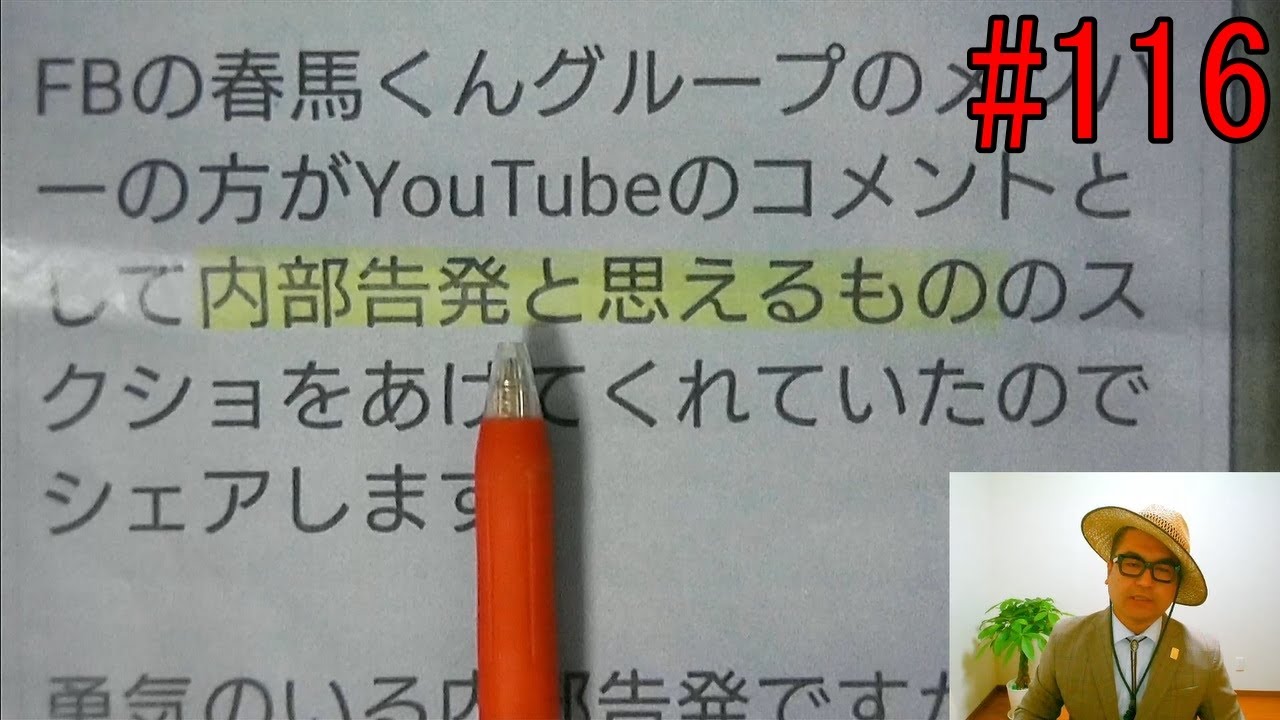 #116
FBの春馬くんグループのメンバ
ーの方がYouTubeのコメントと
して内部告発と思えるもののス
クショをあげてくれていたので
シェアします
勇気のいる内部告発ですが